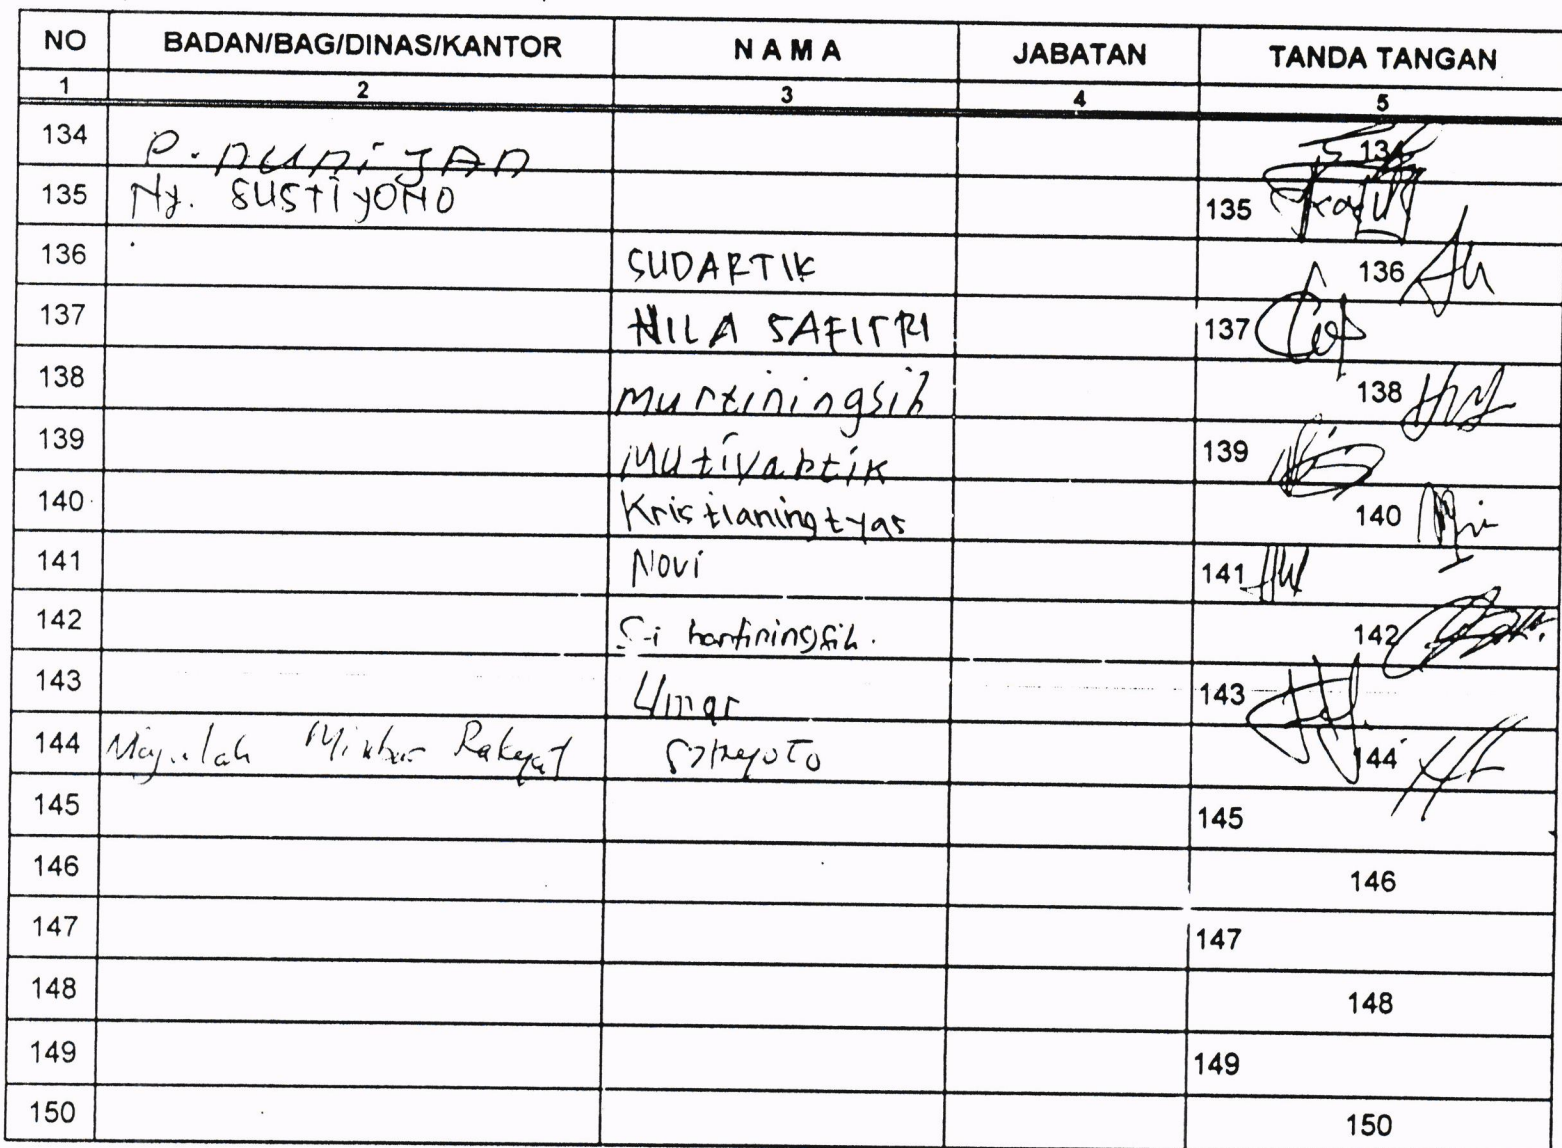 NO BADAN/BAG/DINAS/KANTOR NAMA JABATAN TANDA TANGAN
1 2 3 4 5
134 P. 134
135 Ny. SUSTIYONO 135
136 SUDARTIK 136
137 NILA SAFITRI 137
138 Murtiningsih 138
139 139
140 Kristianingtyas 140
141 Novi 141
142 142
143 Umar 143
144 Majalah Mimbar Rakyat 144
145 145
146 146
147 147
148 148
149 149
150 150